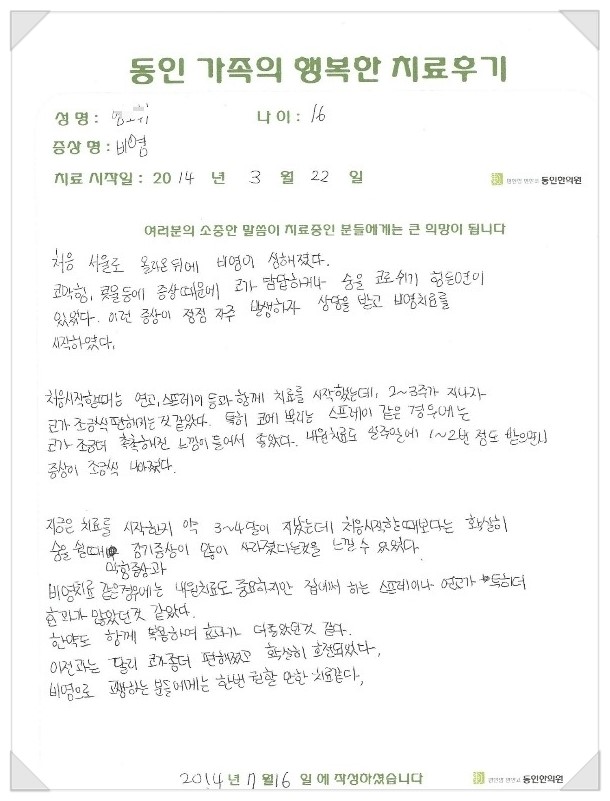 동인 가족의 행복한 치료후기
성 명 :
나 이 : 16
증상 명 : 비염
치료 시작일 : 2014 년 3 월 22 일
동인한의원
여러분의 소중한 말씀이 치료중인 분들에게는 큰 희망이 됩니다
처음 서울로 올라온뒤에 비염이 심해졌다.
코막힘, 콧물등에 증상때문에 코가 답답하거나 숨을 코로쉬기 힘든면이
있었다. 이런 증상이 점점 자주 발생하자 상담을 받고 비염치료를
시작하였다.
처음시작할때는 연고, 스프레이 등과 함께 치료를 시작했는데, 2~3주가 지나자
코가 조금씩 편해지는것 같았다. 특히 코에 뿌리는 스프레이 같은 경우에는
코가 조금더 촉촉해진 느낌이 들어서 좋았다. 내원치료도 일주일에 1~2번 정도 받으면서
증상이 조금씩 나아졌다.
지금은 치료를 시작한지 약 3~4달이 지났는데 처음시작할때보다는 확실히
숨을 쉴때 감기증상이 많이 사라졌다는것을 느낄 수 있었다.
막힘증상과
비염치료 같은경우에는 내원치료도 중요하지만 집에서 하는 스프레이나 연고가 특히더
효과가 많았던것 같았다.
한약도 함께 복용하여 효과가 더좋았던것 같다.
이전과는 달리 코가좀더 편해졌고 확실히 호전되었다.
비염으로 고생하는 분들에게는 한번 권할 만한 치료같다.
2014년 7월 16 일에 작성하셨습니다
동인한의원